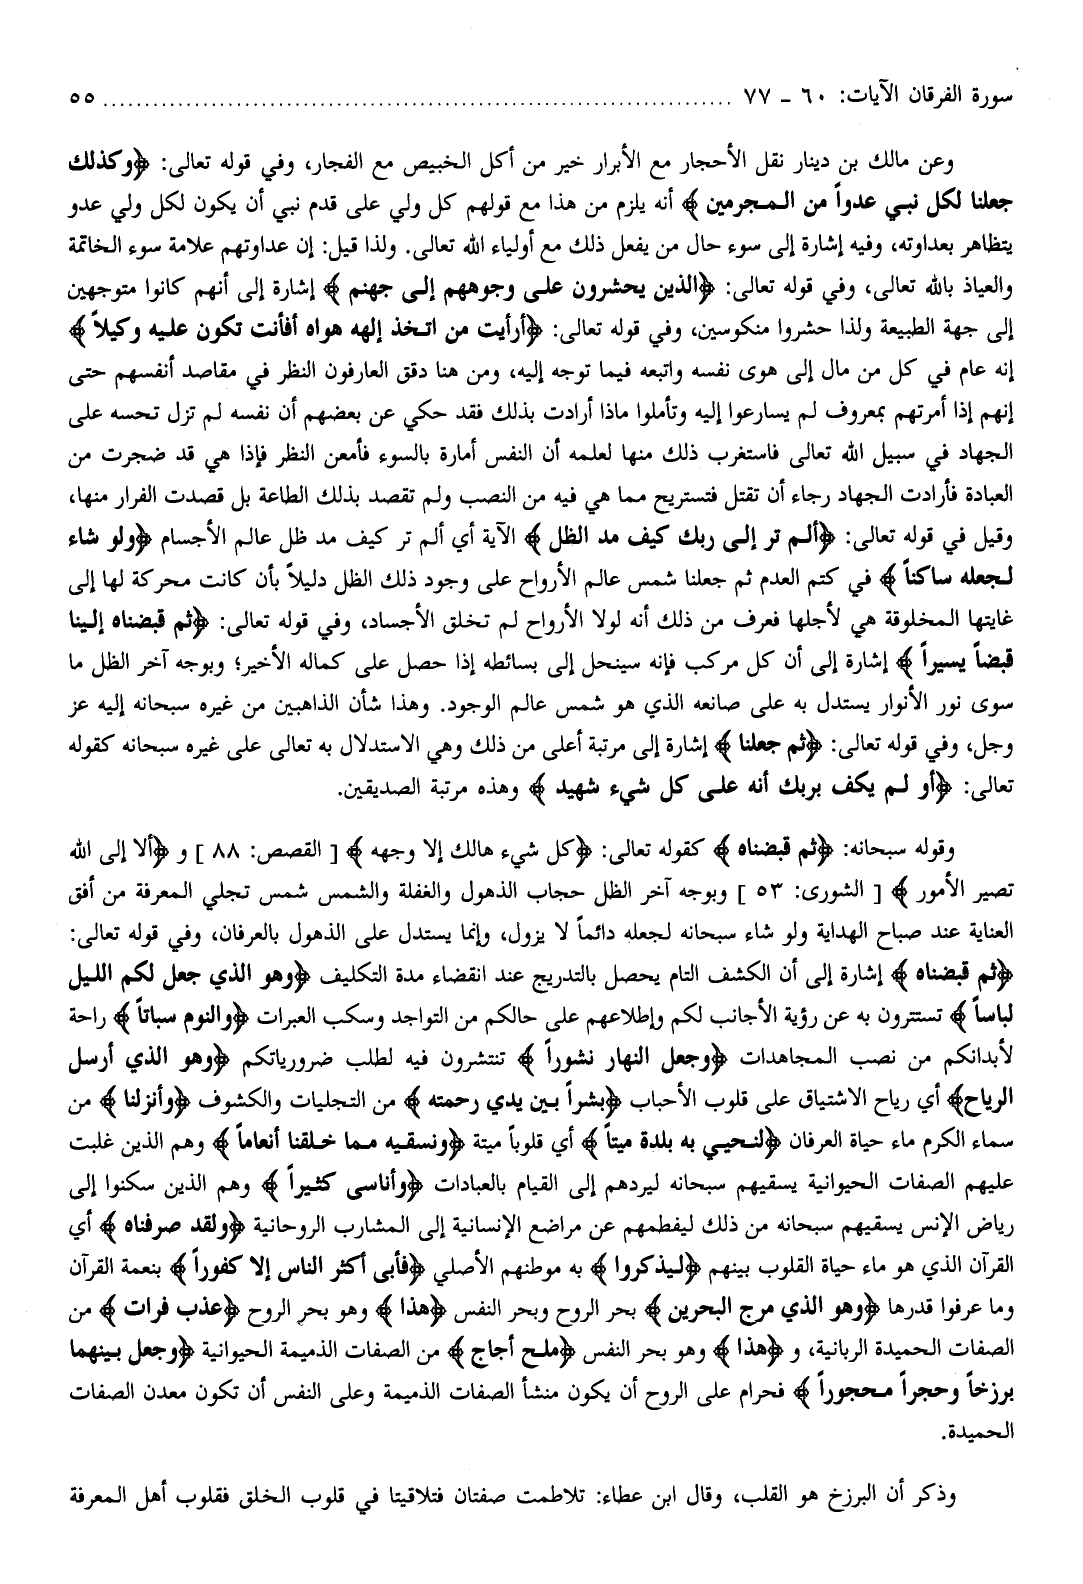 سورة الفرقان الآيات: ٦٠ ـ ٧٧ ........................................................................ ٥٥
وعن مالك بن دينار نقل الأحجار مع الأبرار خير من أكل الخبيص مع الفجار، وفي قوله تعالى: ﴿وكذلك
جعلنا لكل نبي عدواً من المجرمين﴾ أنه يلزم من هذا مع قولهم كل ولي على قدم نبي أن يكون لكل ولي عدو
يتظاهر بعداوته، وفيه إشارة إلى سوء حال من يفعل ذلك مع أولياء الله تعالى. ولذا قيل: إن عداوتهم علامة سوء الخاتمة
والعياذ بالله تعالى، وفي قوله تعالى: ﴿الذين يحشرون على وجوههم إلى جهنم﴾ إشارة إلى أنهم كانوا متوجهين
إلى جهة الطبيعة ولذا حشروا منكوسين، وفي قوله تعالى: ﴿أرأيت من اتخذ إلهه هواه أفأنت تكون عليه وكيلاً﴾
إنه عام في كل من مال إلى هوى نفسه واتبعه فيما توجه إليه، ومن هنا دقق العارفون النظر في مقاصد أنفسهم حتى
إنهم إذا أمرتهم بمعروف لم يسارعوا إليه وتأملوا ماذا أرادت بذلك فقد حكي عن بعضهم أن نفسه لم تزل تحسه على
الجهاد في سبيل الله تعالى فاستغرب ذلك منها لعلمه أن النفس أمارة بالسوء فأمعن النظر فإذا هي قد ضجرت من
العبادة فأرادت الجهاد رجاء أن تقتل فتستريح مما هي فيه من النصب ولم تقصد بذلك الطاعة بل قصدت الفرار منها،
وقيل في قوله تعالى: ﴿ألم تر إلى ربك كيف مد الظل﴾ الآية أي ألم تر كيف مد ظل عالم الأجسام ﴿ولو شاء
لجعله ساكناً﴾ في كتم العدم ثم جعلنا شمس عالم الأرواح على وجود ذلك الظل دليلاً بأن كانت محركة لها إلى
غايتها المخلوقة هي لأجلها فعرف من ذلك أنه لولا الأرواح لم تخلق الأجساد، وفي قوله تعالى: ﴿ثم قبضناه إلينا
قبضاً يسيراً﴾ إشارة إلى أن كل مركب فإنه سينحل إلى بسائطه إذا حصل على كماله الأخير؛ وبوجه آخر الظل ما
سوى نور الأنوار يستدل به على صانعه الذي هو شمس عالم الوجود. وهذا شأن الذاهبين من غيره سبحانه إليه عز
وجل، وفي قوله تعالى: ﴿ثم جعلنا﴾ إشارة إلى مرتبة أعلى من ذلك وهي الاستدلال به تعالى على غيره سبحانه كقوله
تعالى: ﴿أو لم يكف بربك أنه على كل شيء شهيد﴾ وهذه مرتبة الصديقين.
وقوله سبحانه: ﴿ثم قبضناه﴾ كقوله تعالى: ﴿كل شيء هالك إلا وجهه﴾ [ القصص: ٨٨ ] و ﴿ألا إلى الله
تصير الأمور﴾ [ الشورى: ٥٣ ] وبوجه آخر الظل حجاب الذهول والغفلة والشمس شمس تجلي المعرفة من أفق
العناية عند صباح الهداية ولو شاء سبحانه لجعله دائماً لا يزول، وإنما يستدل على الذهول بالعرفان، وفي قوله تعالى:
﴿ثم قبضناه﴾ إشارة إلى أن الكشف التام يحصل بالتدريج عند انقضاء مدة التكليف ﴿وهو الذي جعل لكم الليل
لباساً﴾ تستترون به عن رؤية الأجانب لكم وإطلاعهم على حالكم من التواجد وسكب العبرات ﴿والنوم سباتاً﴾ راحة
لأبدانكم من نصب المجاهدات ﴿وجعل النهار نشوراً﴾ تنتشرون فيه لطلب ضرورياتكم ﴿وهو الذي أرسل
الرياح﴾ أي رياح الاشتياق على قلوب الأحباب ﴿بشراً بين يدي رحمته﴾ من التجليات والكشوف ﴿وأنزلنا﴾ من
سماء الكرم ماء حياة العرفان ﴿لنحيي به بلدة ميتاً﴾ أي قلوباً ميتة ﴿ونسقيه مما خلقنا أنعاماً﴾ وهم الذين غلبت
عليهم الصفات الحيوانية يسقيهم سبحانه ليردهم إلى القيام بالعبادات ﴿وأناسى كثيراً﴾ وهم الذين سكنوا إلى
رياض الإنس يسقيهم سبحانه من ذلك ليفطمهم عن مراضع الإنسانية إلى المشارب الروحانية ﴿ولقد صرفناه﴾ أي
القرآن الذي هو ماء حياة القلوب بينهم ﴿ليذكروا﴾ به موطنهم الأصلي ﴿فأبى أكثر الناس إلا كفوراً﴾ بنعمة القرآن
وما عرفوا قدرها ﴿وهو الذي مرج البحرين﴾ بحر الروح وبحر النفس ﴿هذا﴾ وهو بحر الروح ﴿عذب فرات﴾ من
الصفات الحميدة الربانية، و ﴿هذا﴾ وهو بحر النفس ﴿ملح أجاج﴾ من الصفات الذميمة الحيوانية ﴿وجعل بينهما
برزخاً وحجراً محجوراً﴾ فحرام على الروح أن يكون منشأ الصفات الذميمة وعلى النفس أن تكون معدن الصفات
الحميدة.
وذكر أن البرزخ هو القلب، وقال ابن عطاء: تلاطمت صفتان فتلاقيتا في قلوب الخلق فقلوب أهل المعرفة